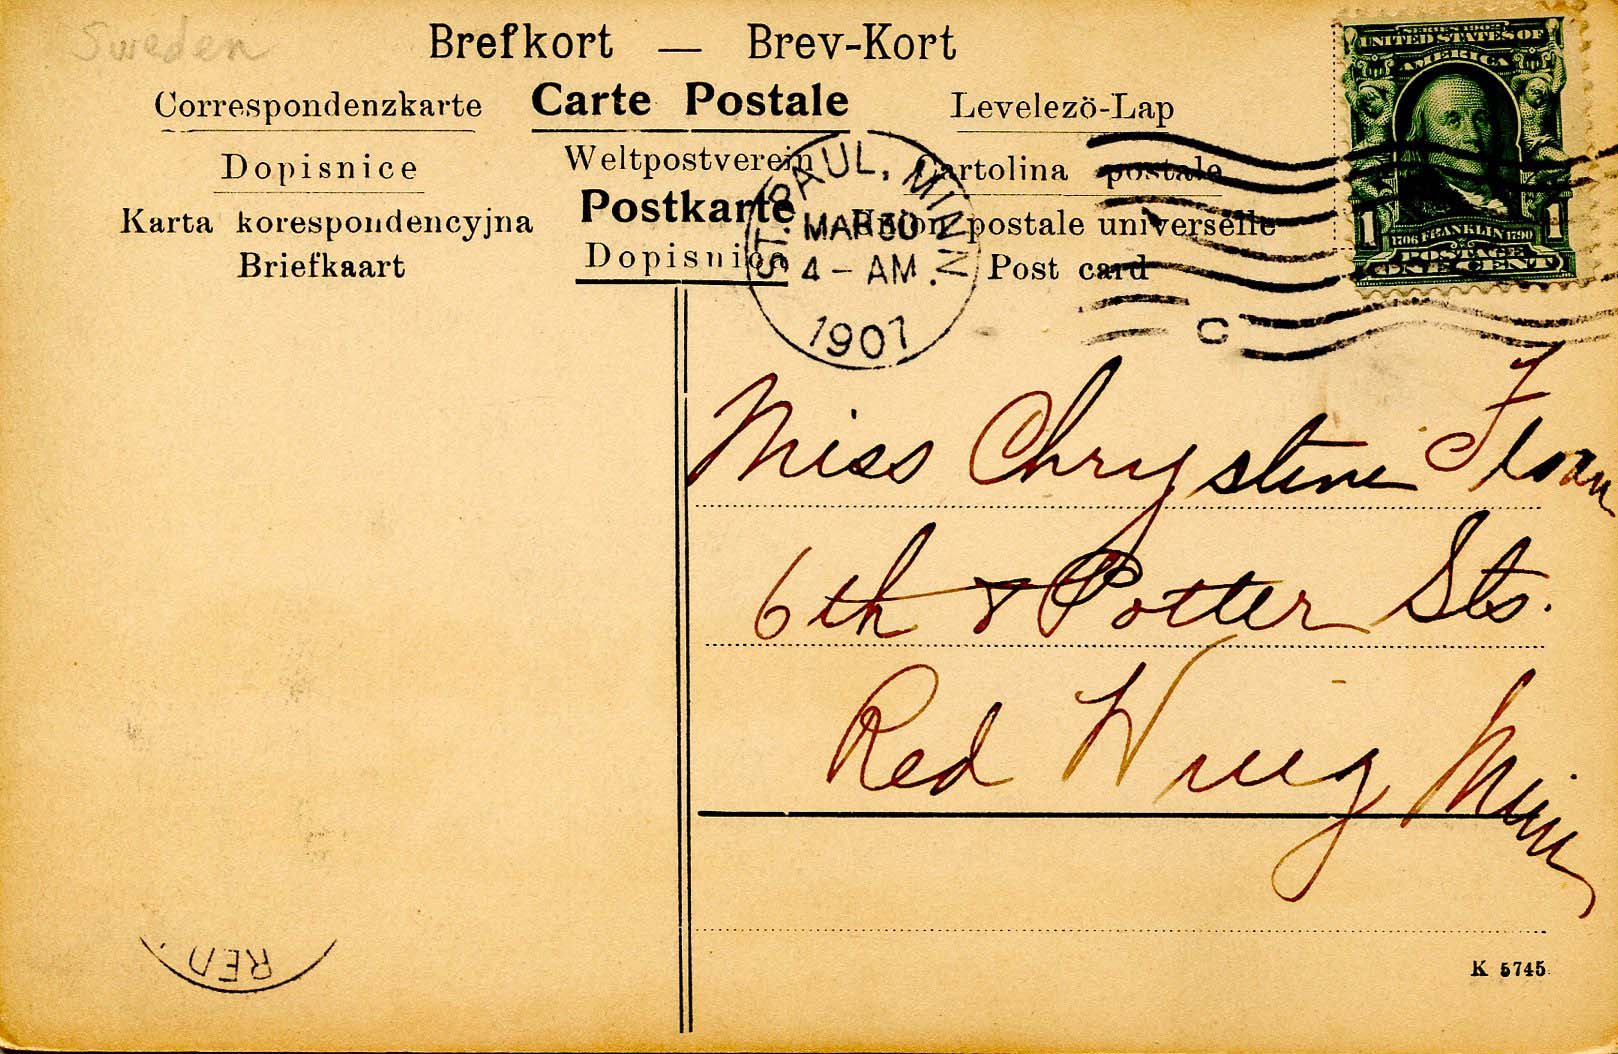 Sweden
Brefkort — Brev-Kort
Correspondenzkarte Carte Postale Levelezö-Lap
Dopisnice Weltpostverein Cartolina postale
Karta korespondencyjna Postkarte Union postale universelle
Briefkaart Dopisnica Post card
ST. PAUL, MINN.
MAR 30
4 - AM.
1907
C
SERIES 1902
UNITED STATES OF
AMERICA
1 1
1706 FRANKLIN 1790
POSTAGE
ONE CENT
Miss Chrystine Floan
6th & Potter Sts.
Red Wing Minn
RED
K 5745